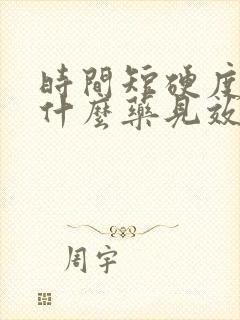 時間短硬度
什麼藥見效
周宇